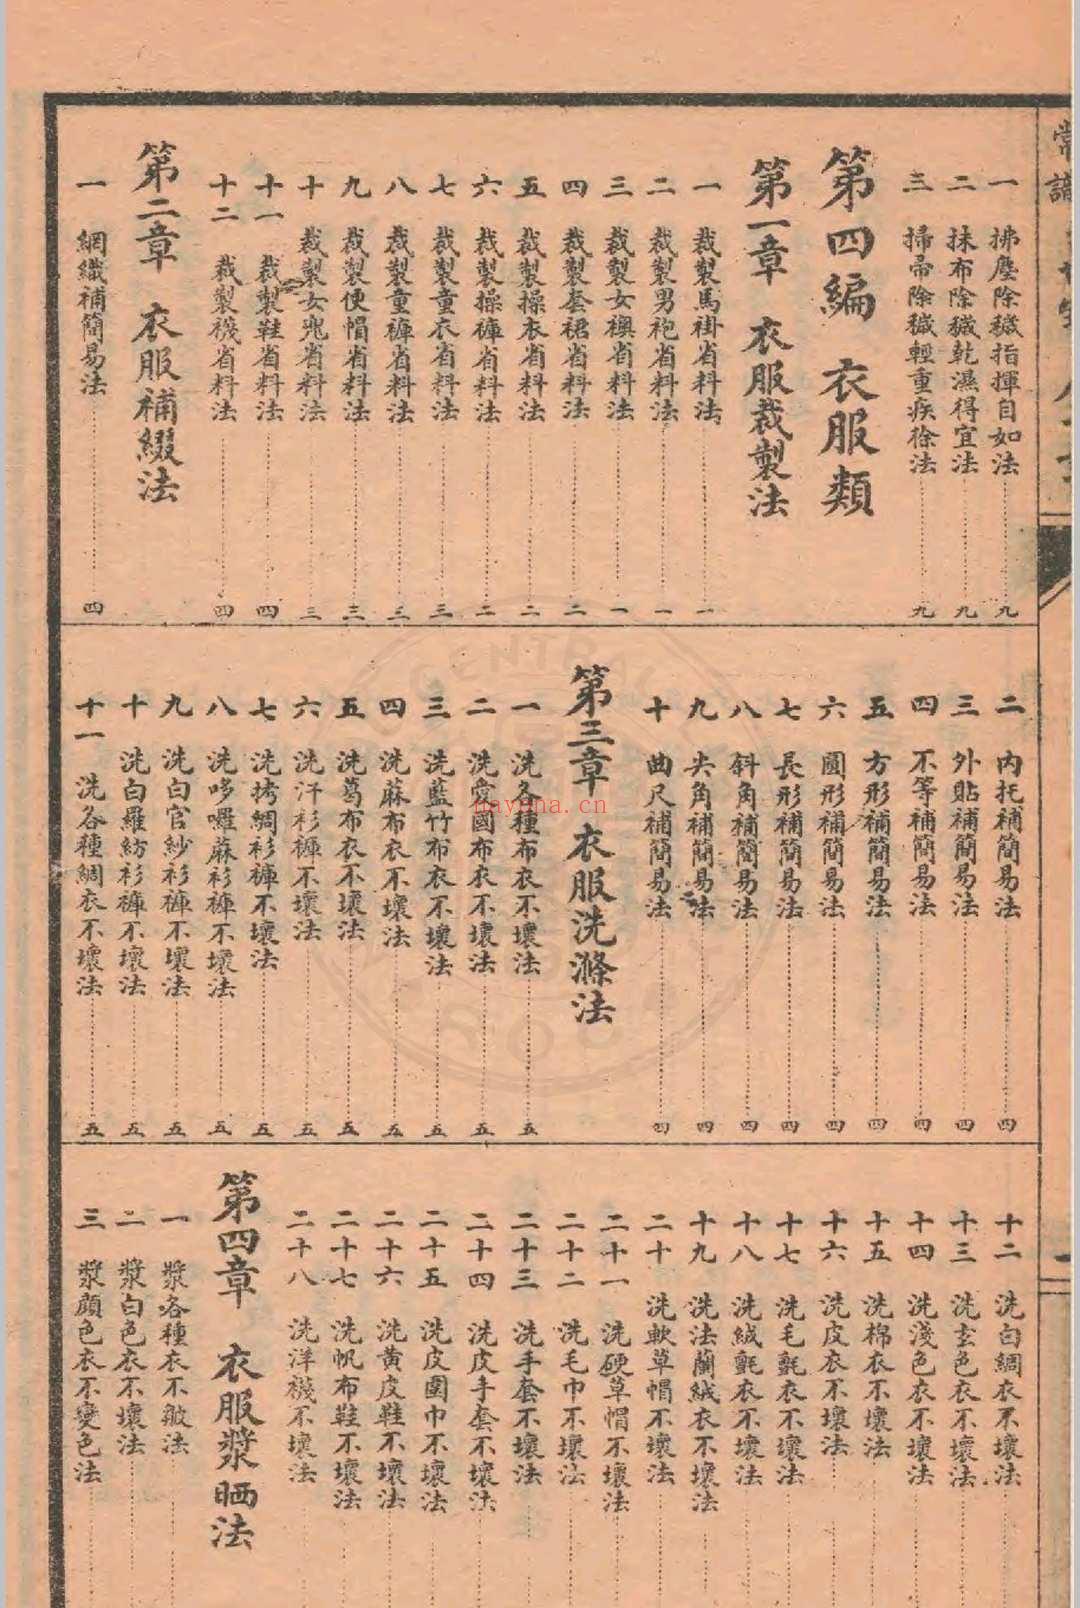 一 拂塵除穢指揮自如法 九
二 抹布除穢乾濕得宜法 九
三 掃帚除穢輕重疾徐法 九
第四編 衣服類
第一章 衣服裁製法
一 裁製馬褂省料法 一
二 裁製男袍省料法 一
三 裁製女襖省料法 一
四 裁製套裙省料法 二
五 裁製操衣省料法 二
六 裁製操褲省料法 二
七 裁製童衣省料法 三
八 裁製童褲省料法 三
九 裁製便帽省料法 三
十 裁製女兜省料法 三
十一 裁製鞋省料法 四
十二 裁製襪省料法 四
第二章 衣服補綴法
一 網織補簡易法 四
二 內托補簡易法 四
三 外貼補簡易法 四
四 不等補簡易法 四
五 方形補簡易法 四
六 圓形補簡易法 四
七 長形補簡易法 四
八 斜角補簡易法 四
九 尖角補簡易法 四
十 曲尺補簡易法 四
第三章 衣服洗滌法
一 洗各種布衣不壞法 五
二 洗愛國布衣不壞法 五
三 洗藍竹布衣不壞法 五
四 洗蔴布衣不壞法 五
五 洗葛布衣不壞法 五
六 洗汗衫褲不壞法 五
七 洗拷綢衫褲不壞法 五
八 洗哆囉蔴衫褲不壞法 五
九 洗白官紗衫褲不壞法 五
十 洗白羅紡衫褲不壞法 五
十一 洗各種綢衣不壞法 五
十二 洗白綢衣不壞法
十三 洗玄色衣不壞法
十四 洗淺色衣不壞法
十五 洗棉衣不壞法
十六 洗皮衣不壞法
十七 洗毛氈衣不壞法
十八 洗絨氈衣不壞法
十九 洗法蘭絨衣不壞法
二十 洗軟草帽不壞法
二十一 洗硬草帽不壞法
二十二 洗毛巾不壞法
二十三 洗手套不壞法
二十四 洗皮手套不壞法
二十五 洗皮圍巾不壞法
二十六 洗黃皮鞋不壞法
二十七 洗帆布鞋不壞法
二十八 洗洋襪不壞法
第四章 衣服漿晒法
一 漿各種衣不皺法
二 漿白色衣不壞法
三 漿顏色衣不變色法
常識
CENTRAL
BOOK
nayona.cn